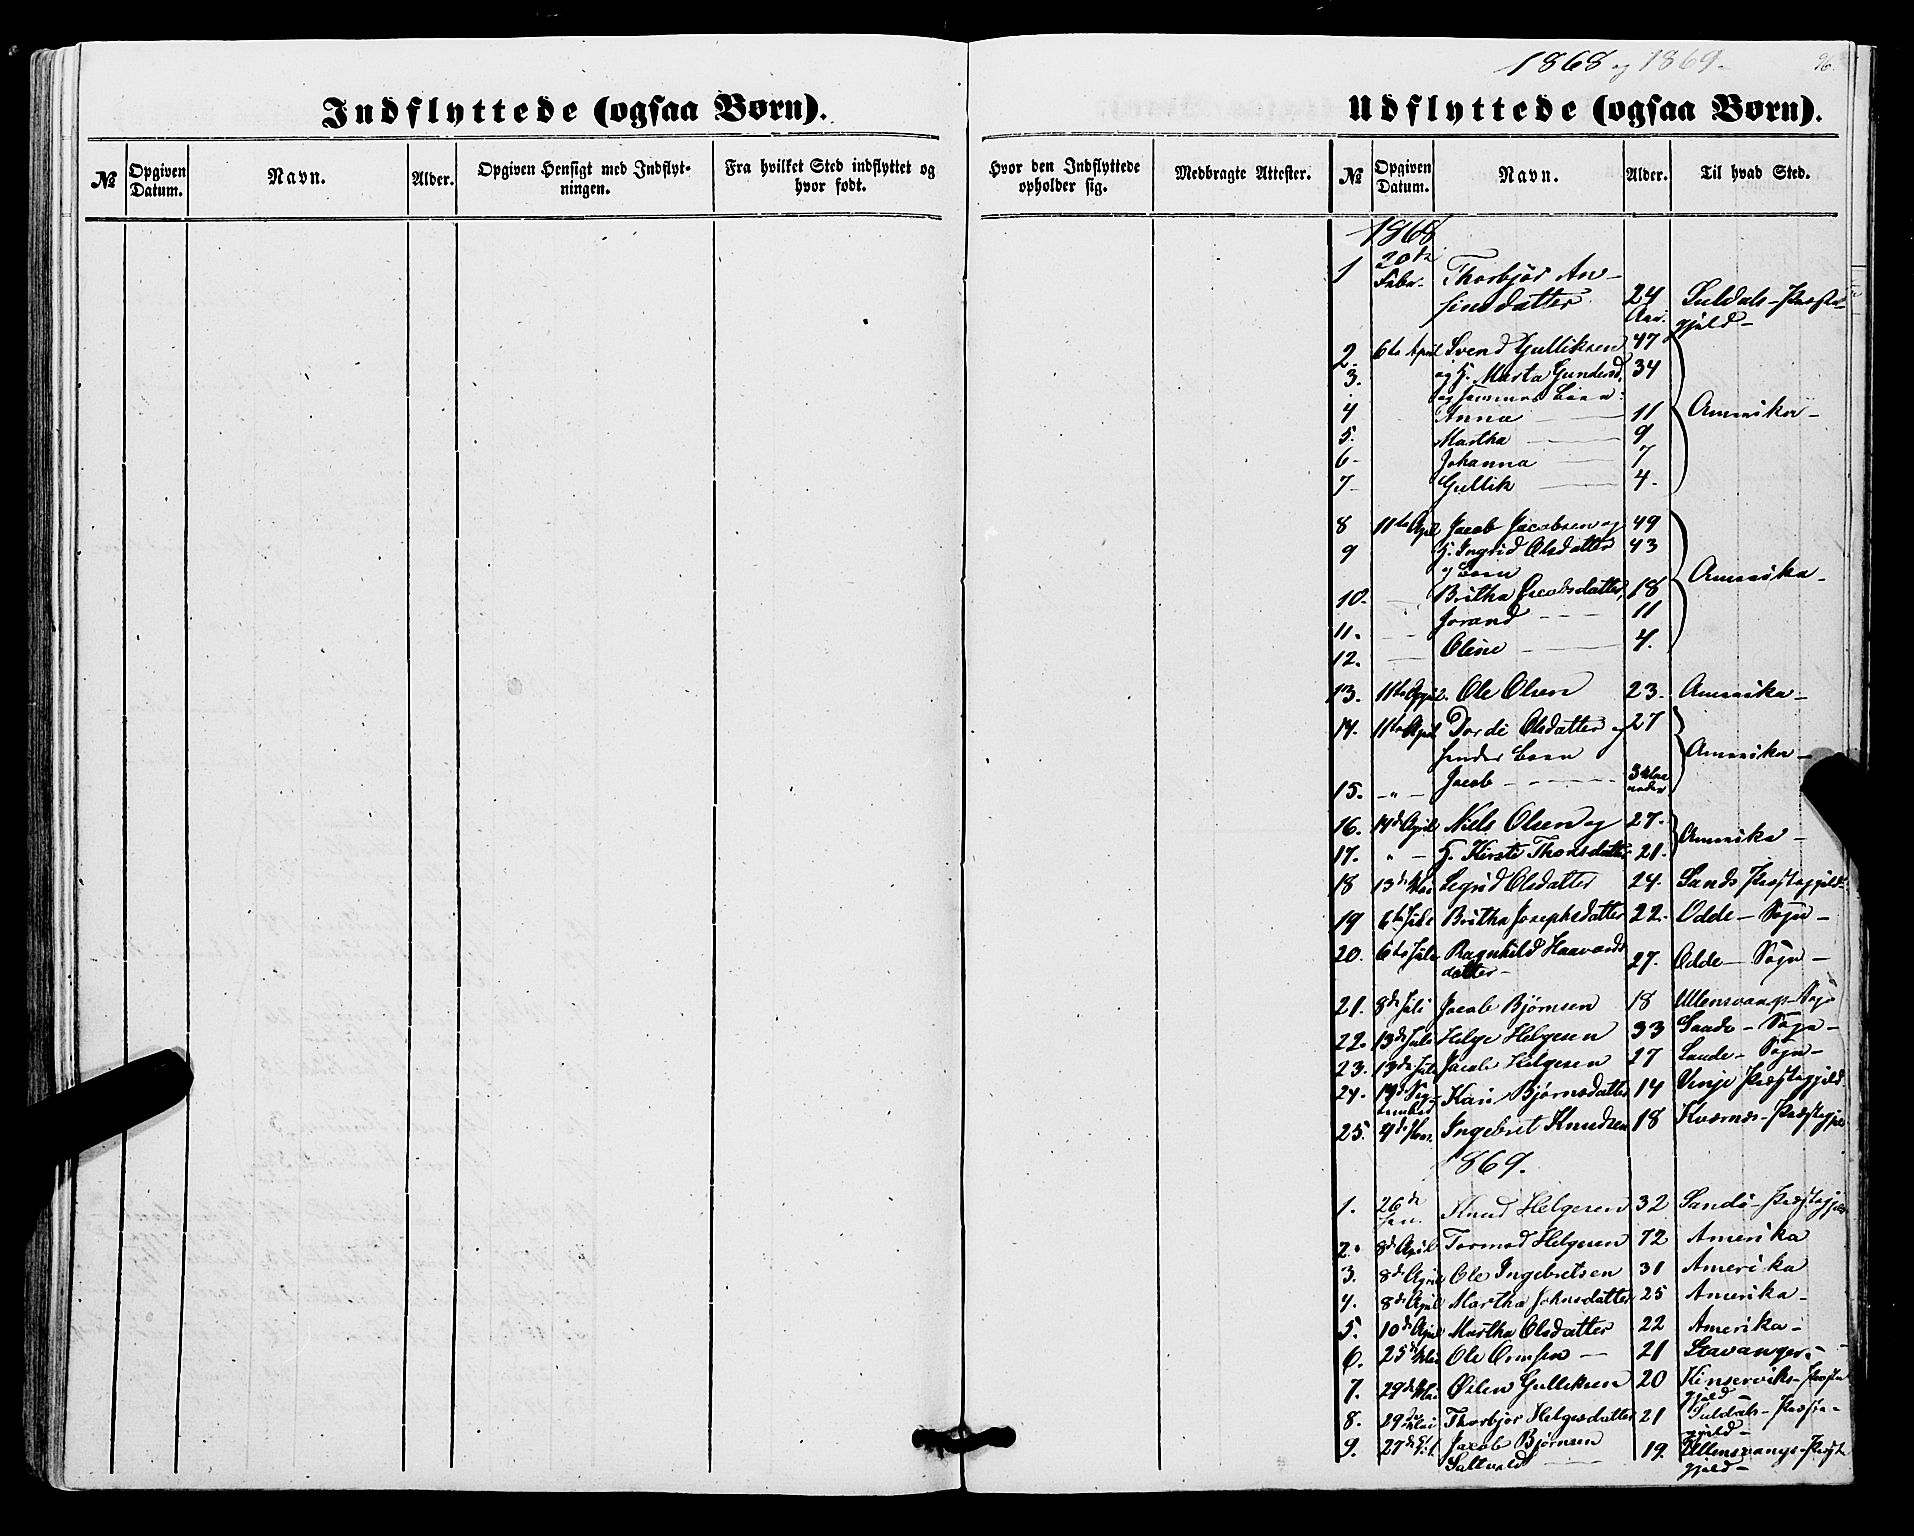 1868 og 1869.
96.
Indflyttede (ogsaa Børn).
Udflyttede (ogsaa Børn).
№ Opgiven Datum. Navn. Alder. Opgiven Hensigt med Indflytningen. Fra hvilket Sted indflyttet og hvor født.
Hvor den Indflyttede opholder sig. Medbragte Attester. № Opgiven Datum. Navn. Alder. Til hvad Sted.
1868
1 20de Febr. Thorbjør An-
finsdatter 24 Aar. Suldals-Præste-
gjeld-
2. 6te April Svend Gulliksen 47
3. og H. Marta Gundersd. 34
og Børn
4 Anna 11 Amerika-
5. Martha 9
6- Johanna 7
7- Gullik 4.
8 11te April Jacob Jacobsen og 49
9 H. Ingrid Olsdatter 43
og Børn
10. Britha Jacobsdatter, 18 Amerika-
11. Jorand 11
12. Oline 4.
13. 11te April. Ole Olsen 23. Amerika-
14. 11te April Dordi Olsdatter og 27
hendes Barn Amerika-
15. -"- Jacob 3 Maaneder
16. 14de April Niels Olsen og 27. Amerika-
17. "- H. Kirsti Thorsdatter 21.
18 13de Mai Segrid Olsdatter 24. Sands Præstegjeld-
19 6te Juli Britha Josephsdatter 22. Odde-Sogn-
20. 6te Juli Ragnhild Haavards
datter- 27. Odde-Sogn-
21. 8de Juli Jacob Bjørnsen 18 Ullensvangs-Sogn
22. 13de Juli Helge Helgesen 33 Sande-Sogn-
23. 13de Juli Jacob Helgesen 27 Sande-Sogn-
24. Sep-
tember Kari Bjørnsdatter 14 Vinje Præstegjeld
25. 9de Ingebret Knudsen 18
1869.
1. 26de Jan. Knud Helgesen 32
2. 8de April Tormod Helgesen 72 Amerika
3. 8de April Ole Ingebretsen 31 Amerika
4. 8de April Martha Johnsdatter 25 Amerika-
5. 10de April Martha Olsdatter 22 Amerika-
6. 25de Mai Ole 21 Stavanger-
7. 29de Mai Gulliksen 20 Kinserviks-Præste
gjeld-
8. 29de Mai Thorbjør Helgesdatter 21 Suldals-Præste-
gjeld-
9. 27de Jacob Bjørnsen 19. Ullensvangs-Præste
gjeld-